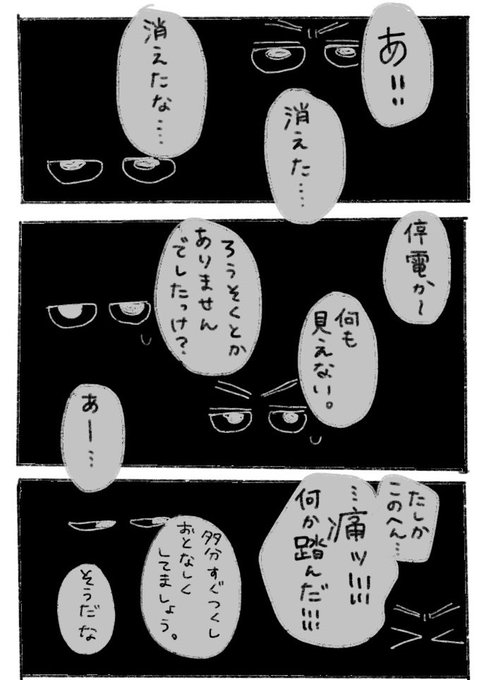 あ!!
消えた……
消えたな……
停電か〜
何も
見えない。
ろうそくとか
ありません
でしたっけ?
あー…
たしか
このへん…
…痛ッ!!!
何か踏んだ!!!
多分すぐつくし
おとなしく
してましょう。
そうだな